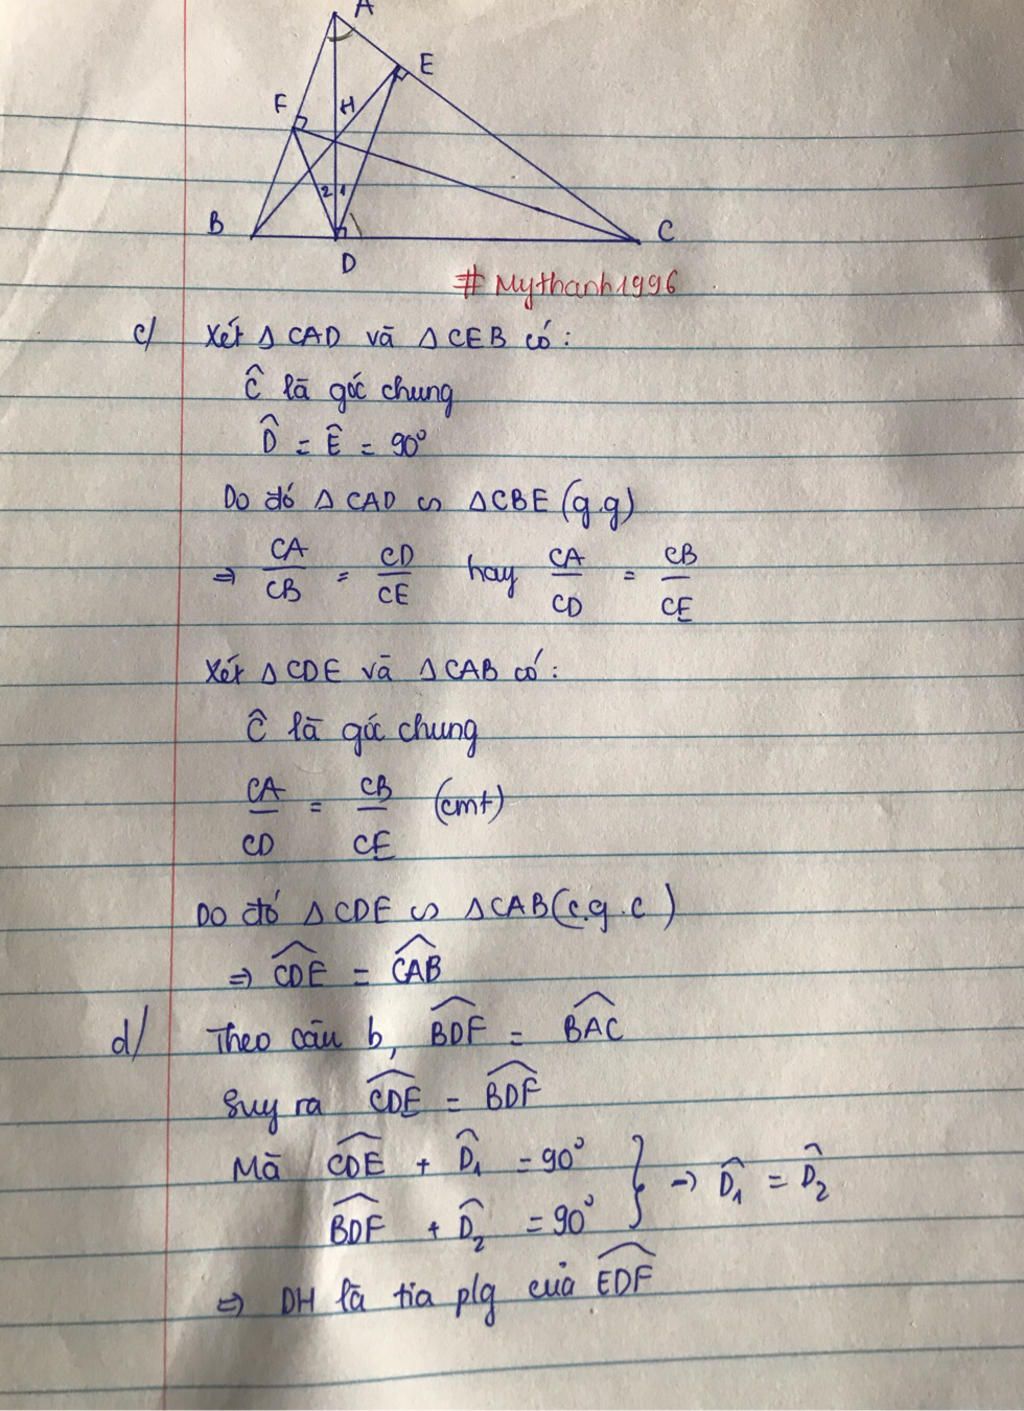 A
E
F
H
2 1
B
C
D
# Mythanh1996
c/ Xét Δ CAD và Δ CEB có:
Ĉ là góc chung
D̂ = Ê = 90°
Do đó Δ CAD ∽ Δ CBE (g.g)
⇒ CA/CB = CD/CE hay CA/CD = CB/CE
Xét Δ CDE và Δ CAB có:
Ĉ là góc chung
CA/CD = CB/CE (cmt)
Do đó Δ CDE ∽ Δ CAB (c.g.c)
⇒ \widehat{CDE} = \widehat{CAB}
d/ Theo câu b, \widehat{BDF} = \widehat{BAC}
Suy ra \widehat{CDE} = \widehat{BDF}
Mà \widehat{CDE} + D̂₁ = 90°
\widehat{BDF} + D̂₂ = 90° } → D̂₁ = D̂₂
⇒ DH là tia plg của \widehat{EDF}